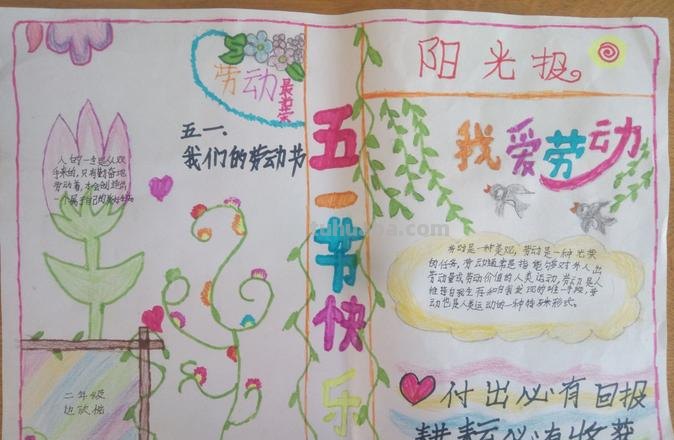 劳动
最光荣
五一、
我们的劳动节
人的一生是从双
手来的,只有勤奋地
劳动着,才会创造出
一个属于自己的美好生活
二年级
五一节快乐
阳光报
我爱劳动
劳动是一种美观,劳动是一种光荣
的任务,劳动通常是指能够对外人出
劳动量或劳动价值的人类运动,劳动是人
维持自我生存和自我发现的唯一手段,劳
动也是人类运动的一种特殊形式。
付出必有回报
耕耘必有收获
tuhuoba.com